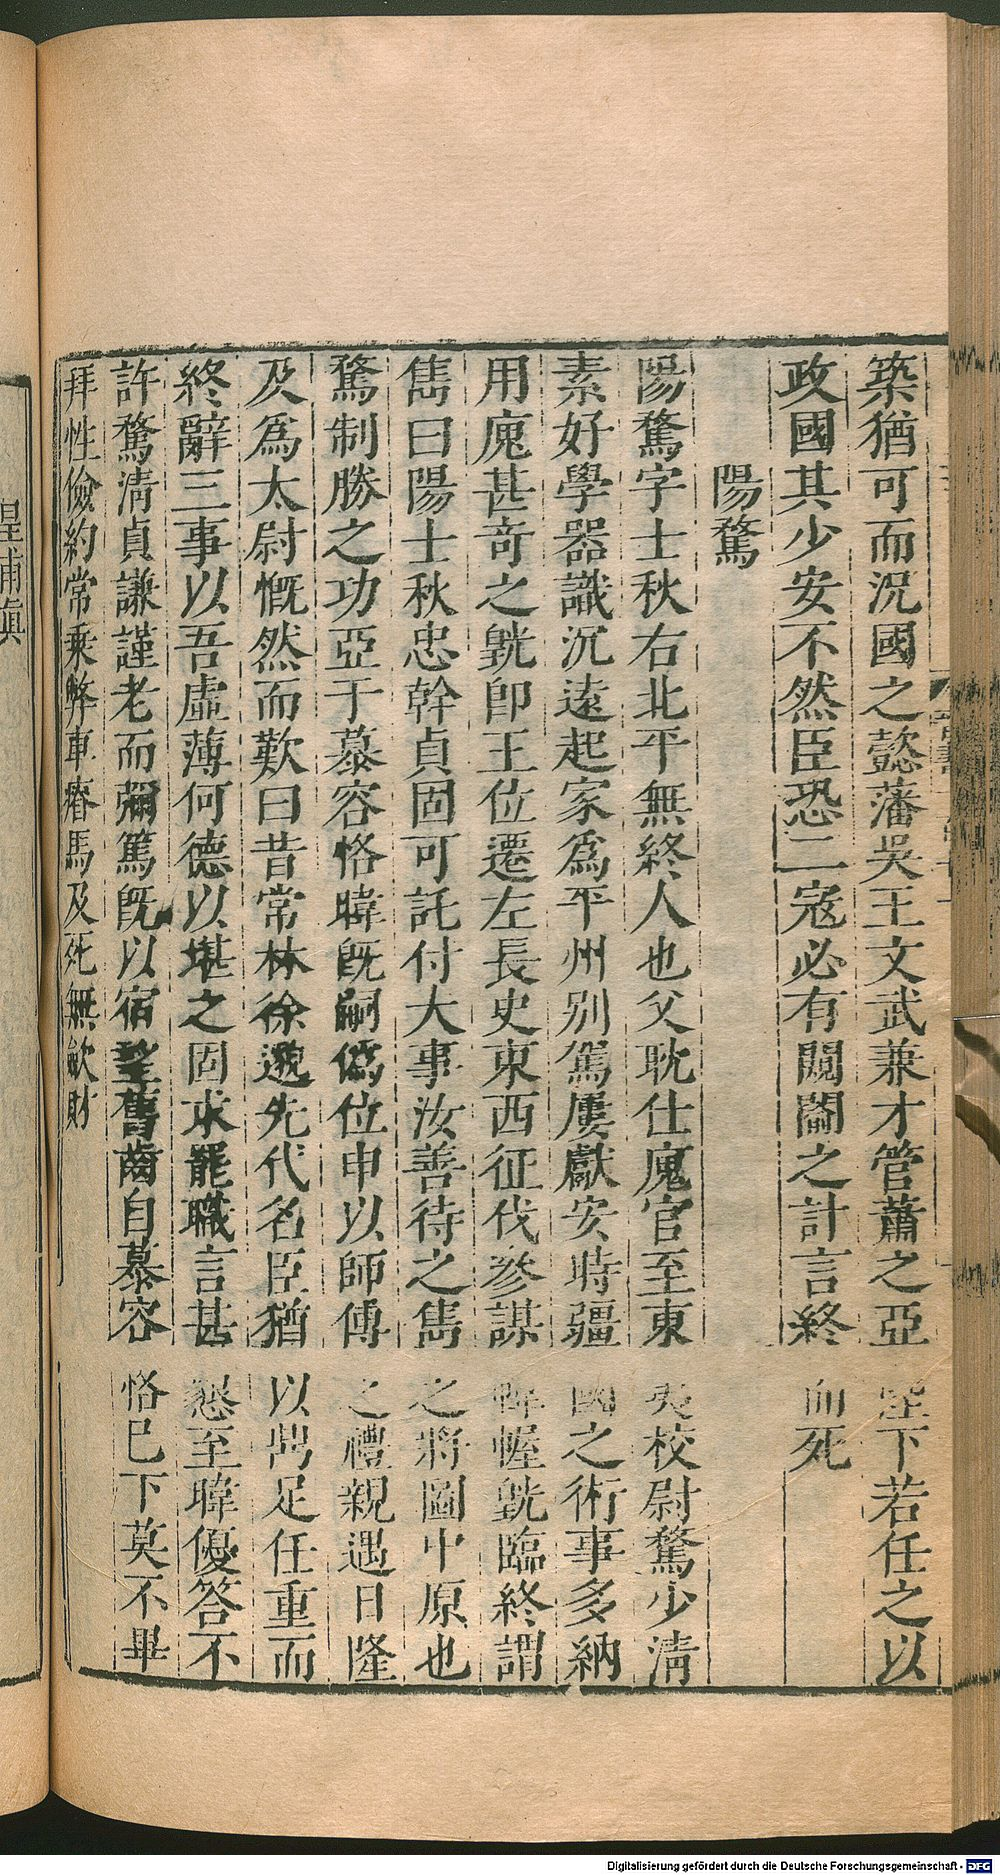 築猶可而況國之懿藩吳王文武兼才管蕭之亞陛下若任之以
政國其少安不然臣恐二寇必有闚𨵦之計言終而死
陽騖
陽騖字士秋右北平無終人也父耽仕廆官至東夷校尉騖少清
素好學器識沉遠起家爲平州別駕屢獻安時疆國之術事多納
用廆甚奇之皝卽王位遷左長史東西征伐參謀幃幄皝臨終謂
儁曰陽士秋忠幹貞固可託付大事汝善待之儁之將圖中原也
騖制勝之功亞于慕容恪暐旣嗣僞位申以師傅之禮親遇日隆
及爲太尉慨然而歎曰昔常林徐邈先代名臣猶以鼎足任重而
終辭三事以吾虛薄何德以堪之固求罷職言甚懇至暐優答不
許騖清貞謙謹老而彌篤旣以宿望舊齒自慕容恪已下莫不畢
拜性儉約常乘弊車瘠馬及死無斂財
皇甫真
Digitalisierung gefördert durch die Deutsche Forschungsgemeinschaft - DFG